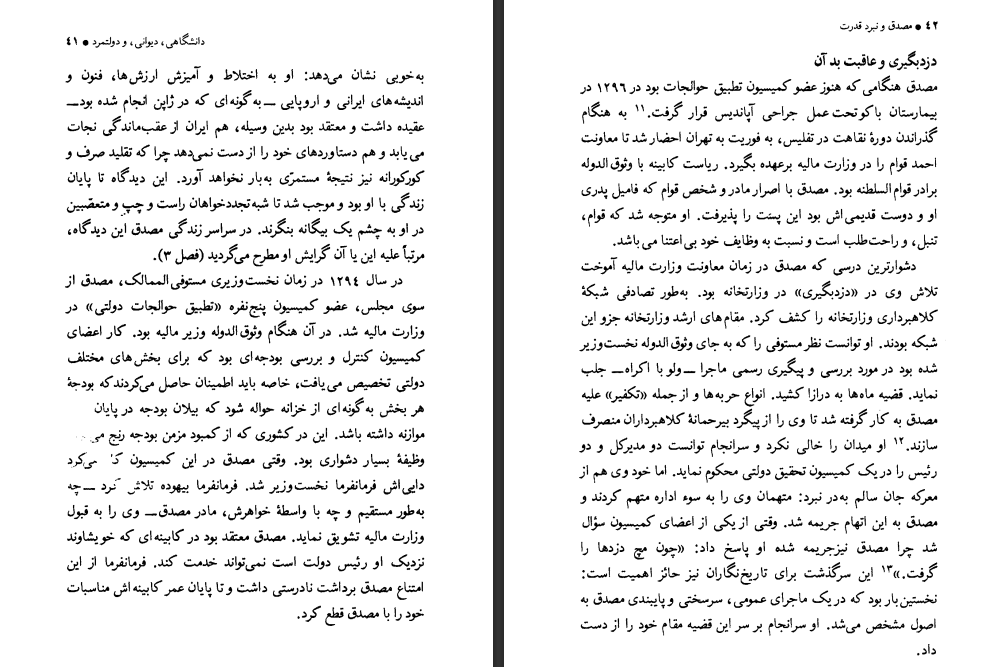 دانشگاهی، دیوانی، و دولتمرد ● ۴۱
به‌خوبی نشان می‌دهد: او به اختلاط و آمیزش ارزش‌ها، فنون و
اندیشه‌های ایرانی و اروپایی ــ به‌گونه‌ای که در ژاپن انجام شده بود ــ
عقیده داشت و معتقد بود بدین وسیله، هم ایران از عقب‌ماندگی نجات
می‌یابد و هم دستاوردهای خود را از دست نمی‌دهد چرا که تقلید صرف و
کورکورانه نیز نتیجهٔ مستمرّی به‌بار نخواهد آورد. این دیدگاه تا پایان
زندگی با او بود و موجب شد تا شبه تجددخواهان راست و چپ و متعصّبین
در او به چشم یک بیگانه بنگرند. در سراسر زندگی مصدق این دیدگاه،
مرتباً علیه این یا آن گرایش او مطرح می‌گردید (فصل ۳).
در سال ۱۲۹۴ در زمان نخست‌وزیری مستوفی‌الممالک، مصدق از
سوی مجلس، عضو کمیسیون پنج‌نفره «تطبیق حوالجات دولتی» در
وزارت مالیه شد. در آن هنگام وثوق‌الدوله وزیر مالیه بود. کار اعضای
کمیسیون کنترل و بررسی بودجه‌ای بود که برای بخش‌های مختلف
دولتی تخصیص می‌یافت، خاصه باید اطمینان حاصل می‌کردند که بودجهٔ
هر بخش به‌گونه‌ای از خزانه حواله شود که بیلان بودجه در پایان
موازنه داشته باشد. این در کشوری که از کمبود مزمن بودجه رنج
وظیفهٔ بسیار دشواری بود. وقتی مصدق در این کمیسیون می‌کرد
دایی‌اش فرمانفرما نخست‌وزیر شد. فرمانفرما بیهوده تلاش کرد ــ چه
به‌طور مستقیم و چه با واسطهٔ خواهرش، مادر مصدق ــ وی را به قبول
وزارت مالیه تشویق نماید. مصدق معتقد بود در کابینه‌ای که خویشاوند
نزدیک او رئیس دولت است نمی‌تواند خدمت کند. فرمانفرما از این
امتناع مصدق برداشت نادرستی داشت و تا پایان عمر کابینه‌اش مناسبات
خود را با مصدق قطع کرد.
۴۲ ● مصدق و نبرد قدرت
دزدبگیری و عاقبت بد آن
مصدق هنگامی که هنوز عضو کمیسیون تطبیق حوالجات بود در ۱۲۹۶ در
بیمارستان باکو تحت عمل جراحی آپاندیس قرار گرفت.۱۱ به هنگام
گذراندن دورهٔ نقاهت در تفلیس، به فوریت به تهران احضار شد تا معاونت
احمد قوام را در وزارت مالیه برعهده بگیرد. ریاست کابینه با وثوق‌الدوله
برادر قوام‌السلطنه بود. مصدق با اصرار مادر و شخص قوام که فامیل پدری
او و دوست قدیمی‌اش بود این پست را پذیرفت. او متوجه شد که قوام،
تنبل، و راحت‌طلب است و نسبت به وظایف خود بی‌اعتنا می‌باشد.
دشوارترین درسی که مصدق در زمان معاونت وزارت مالیه آموخت
تلاش وی در «دزدبگیری» در وزارتخانه بود. به‌طور تصادفی شبکهٔ
کلاهبرداری وزارتخانه را کشف کرد. مقام‌های ارشد وزارتخانه جزو این
شبکه بودند. او توانست نظر مستوفی را که به جای وثوق‌الدوله نخست‌وزیر
شده بود در مورد بررسی و پیگیری رسمی ماجرا ــ ولو با اکراه ــ جلب
نماید. قضیه ماه‌ها به درازا کشید. انواع حربه‌ها و از جمله «تکفیر» علیه
مصدق به کار گرفته شد تا وی را از پیگرد بیرحمانهٔ کلاهبرداران منصرف
سازند.۱۲ او میدان را خالی نکرد و سرانجام توانست دو مدیرکل و دو
رئیس را در یک کمیسیون تحقیق دولتی محکوم نماید. اما خود وی هم از
معرکه جان سالم به‌در نبرد: متهمان وی را به سوء اداره متهم کردند و
مصدق به این اتهام جریمه شد. وقتی از یکی از اعضای کمیسیون سؤال
شد چرا مصدق نیز جریمه شده او پاسخ داد: «چون مچ دزدها را
گرفت.»۱۳ این سرگذشت برای تاریخ‌نگاران نیز حائز اهمیت است:
نخستین‌بار بود که در یک ماجرای عمومی، سرسختی و پایبندی مصدق به
اصول مشخص می‌شد. او سرانجام بر سر این قضیه مقام خود را از دست
داد.